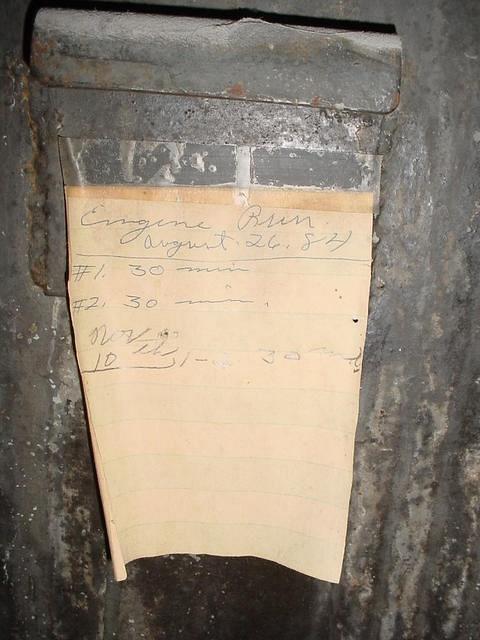 Engine Run
August 26. 84
#1. 30 min
#2. 30 min.
Nov
10 th 1- 30